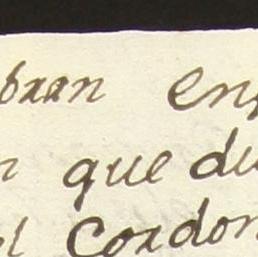 bran en
que du
l Cordon